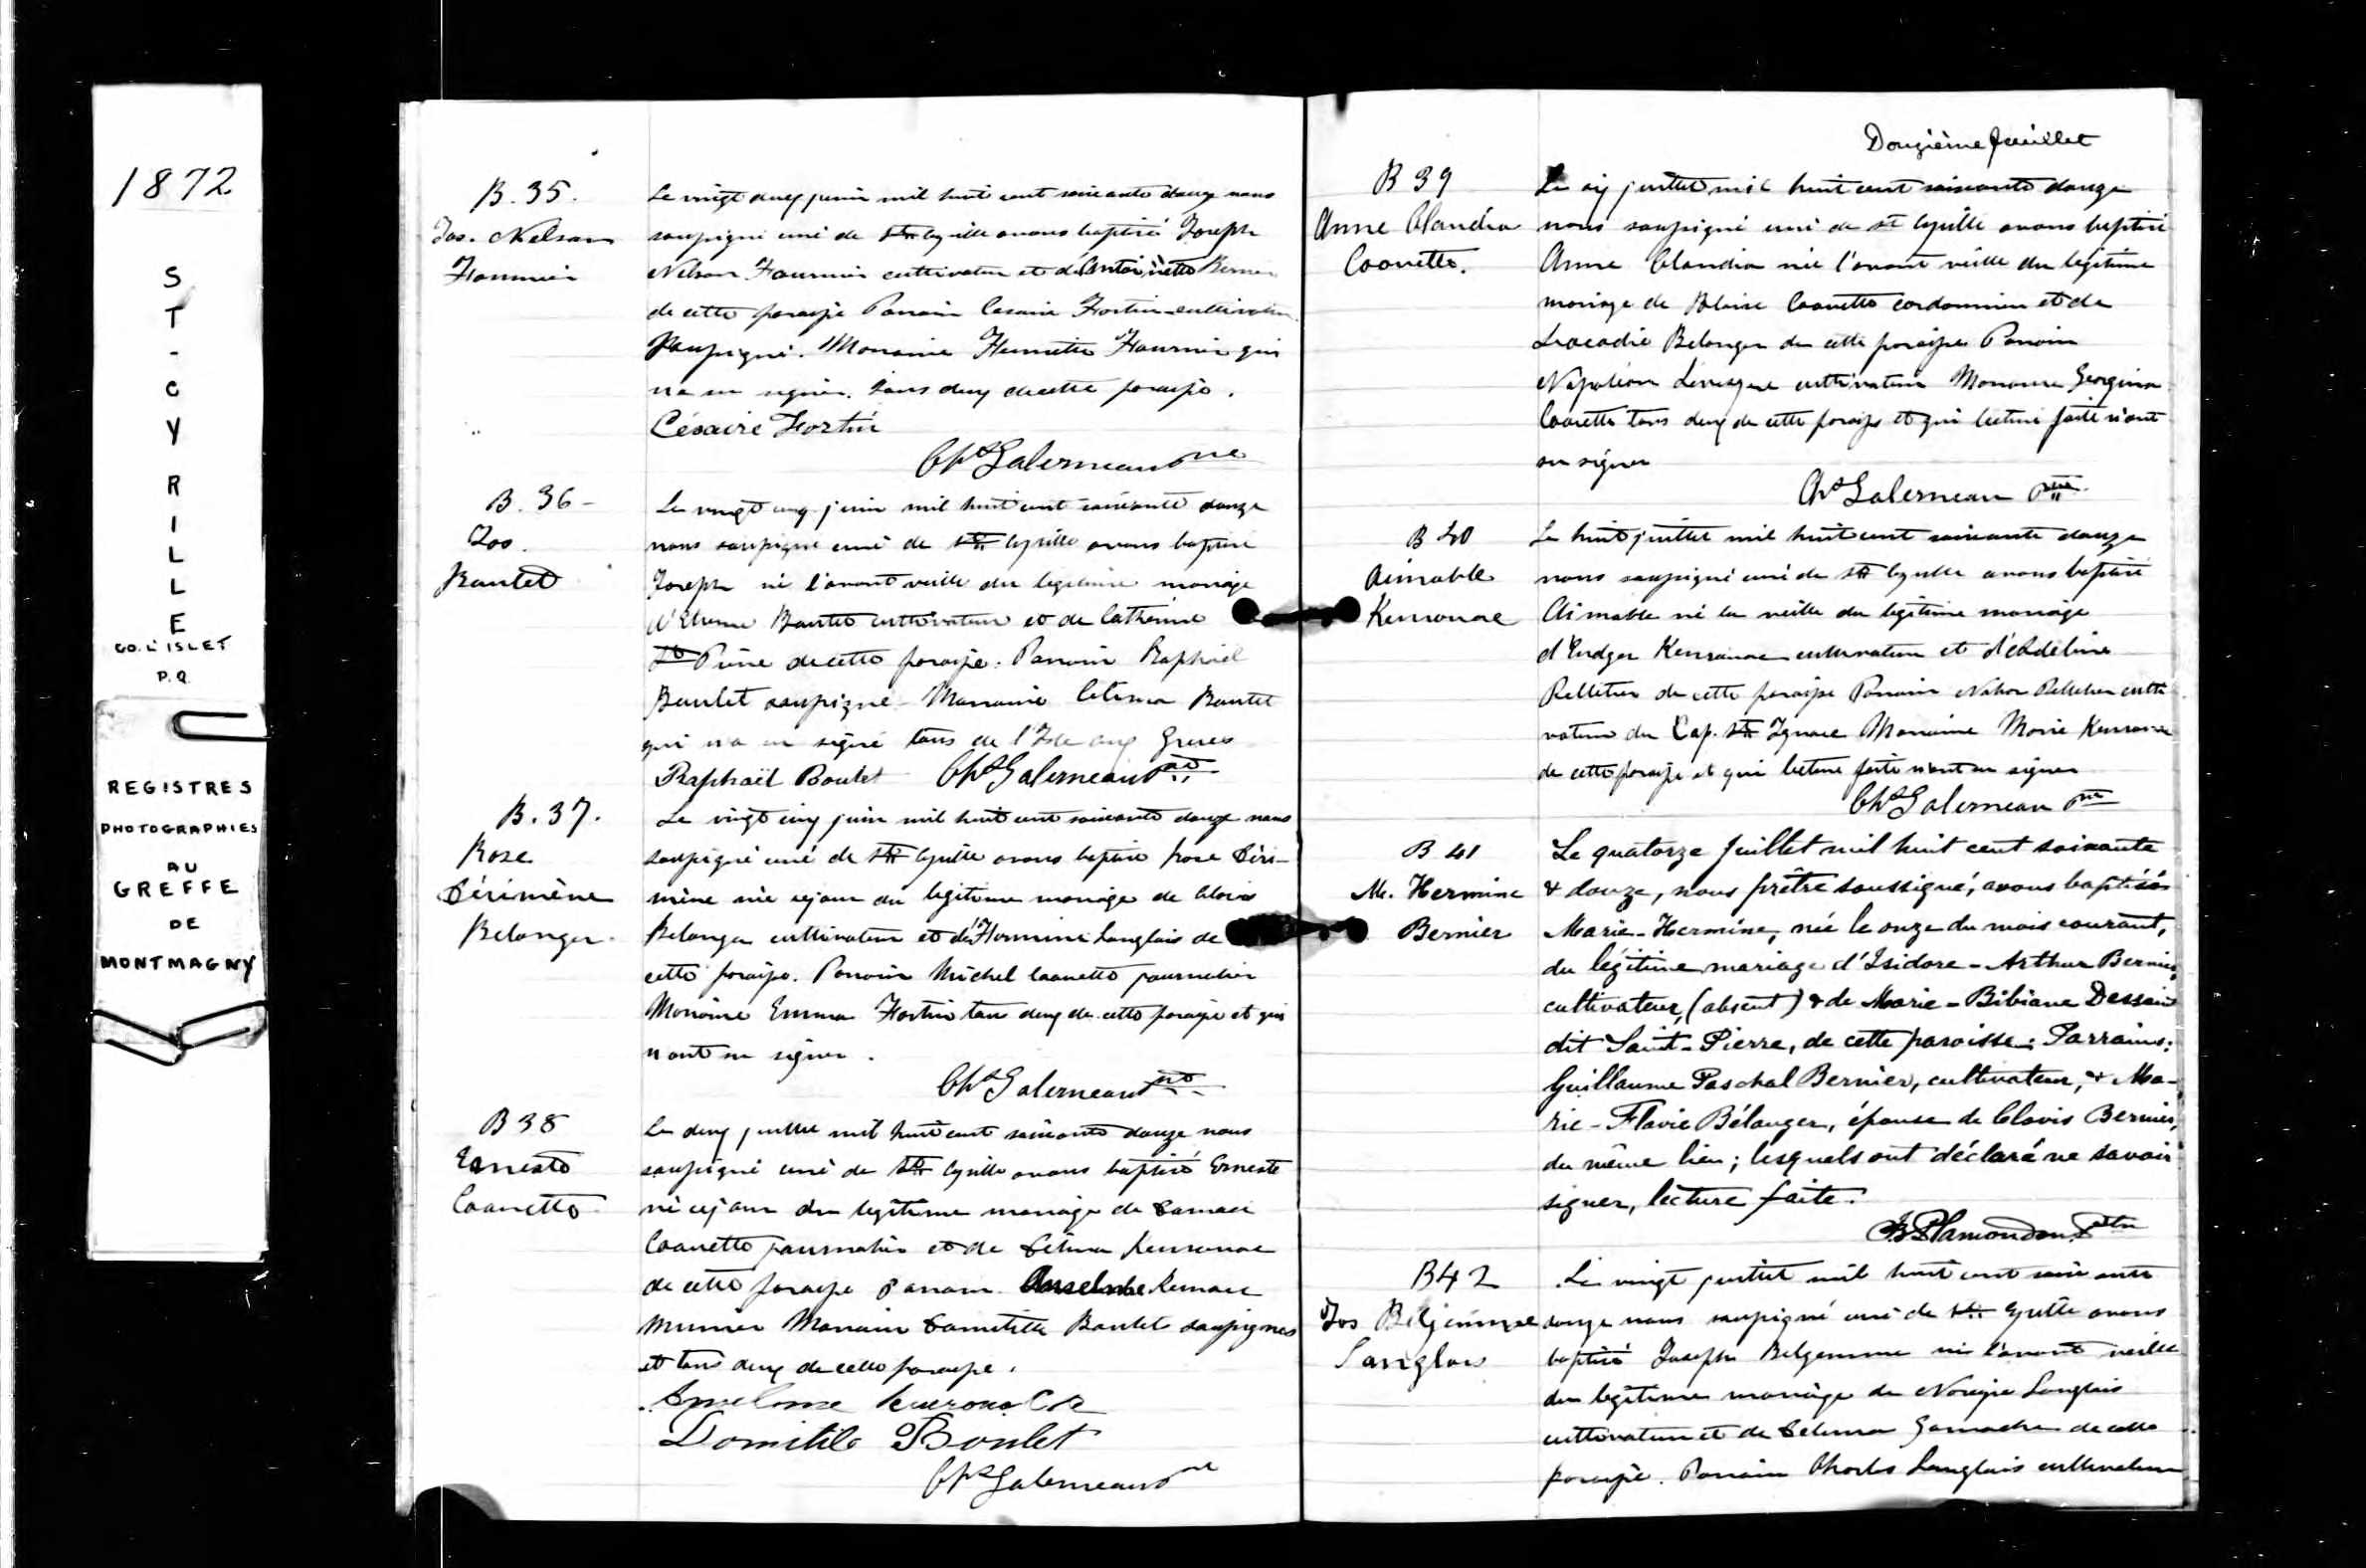 1872
ST-CYRILLE
CO. L'ISLET
P.Q.
REGISTRES
PHOTOGRAPHIES
AU
GREFFE
DE
MONTMAGNY
B. 35.
Jos. Nelson
Fournier
Le vingt deux juin mil huit cent soixante douze nous
soussigné curé de St Cyrille avons baptisé Joseph
Nelson Fournier cultivateur et d'Antoinette Bernier
de cette paroisse Parrain Cesaire Fortin cultivateur
soussigné. Marraine Fournier qui
n'a su signer. tous deux de cette paroisse.
Césaire Fortin
Chs Galerneau ptre
B. 36 -
Jos.
Boulet
Le vingt cinq juin mil huit cent soixante douze
nous soussigné curé de St Cyrille avons baptisé
Joseph né l'avant veille du légitime mariage
d'Etienne Boulet cultivateur et de Catherine
St Pierre de cette paroisse. Parrain Raphael
Boulet soussigné - Marraine Boulet
qui n'a su signé tous de l'Isle aux Grues
Raphaël Boulet Chs Galerneau ptre
B. 37.
Rose
Bélanger.
Le vingt cinq juin mil huit cent soixante douze nous
soussigné curé de St Cyrille avons baptisé Rose
née ce jour du légitime mariage de Clovis
Belanger cultivateur et d'Hermine Langlais de
cette paroisse. Parrain Michel Caouette journalier
Marraine Emma Fortin tous deux de cette paroisse et qui
n'ont su signer.
Chs Galerneau ptre
B 38
Erneste
Caouette
Le deux juillet mil huit cent soixante douze nous
soussigné curé de St Cyrille avons baptisé Erneste
né ce jour du légitime mariage de
Caouette journalier et de
de cette paroisse Parrain Anselme
Marraine Boulet soussignés
et tous deux de cette paroisse.
Domitile Boulet
Chs Galerneau ptre
Douzième feuillet
B 39
Anne Claudia
Caouette.
Le six juillet mil huit cent soixante douze
nous soussigné curé de St Cyrille avons baptisé
Anne Claudia née l'avant veille du légitime
mariage de Blaise Caouette cordonnier et de
Leocadie Belanger de cette paroisse Parrain
Napoléon Levesque cultivateur Marraine Georgina
Caouette tous deux de cette paroisse et qui lecture faite n'ont
su signer
Chs Galerneau ptre
B 40
Aimable
Kerouac
Le huit juillet mil huit cent soixante douze
nous soussigné curé de St Cyrille avons baptisé
Aimable né la veille du légitime mariage
d'Eudger Kerouac cultivateur et d'Adeline
Pelletier de cette paroisse Parrain Pelletier culti
vateur du Cap. St Ignace Marraine Marie Kerouac
de cette paroisse et qui lecture faite n'ont su signer
Chs Galerneau ptre
B 41
M. Hermine
Bernier
Le quatorze juillet mil huit cent soixante
& douze, nous prêtre soussigné, avons baptisée
Marie-Hermine, née le onze du mois courant,
du légitime mariage d'Isidore-Arthur Bernier,
cultivateur, (absent) & de Marie-Bibiane Dessein
dit Saint-Pierre, de cette paroisse. Parrains:
Guillaume Paschal Bernier, cultivateur, & Ma-
rie-Flavie Bélanger, épouse de Clovis Bernier,
du même lieu; lesquels ont déclaré ne savoir
signer, lecture faite.
Plamondon, Ptre
B 42
Jos Belgeimme
Langlois
Le vingt juillet mil huit cent soixante
douze nous soussigné curé de St Cyrille avons
baptisé Joseph Belgemme né l'avant veille
du légitime mariage de Langlais
cultivateur et de Gamache de cette
paroisse. Parrain Charles Langlais cultivateur